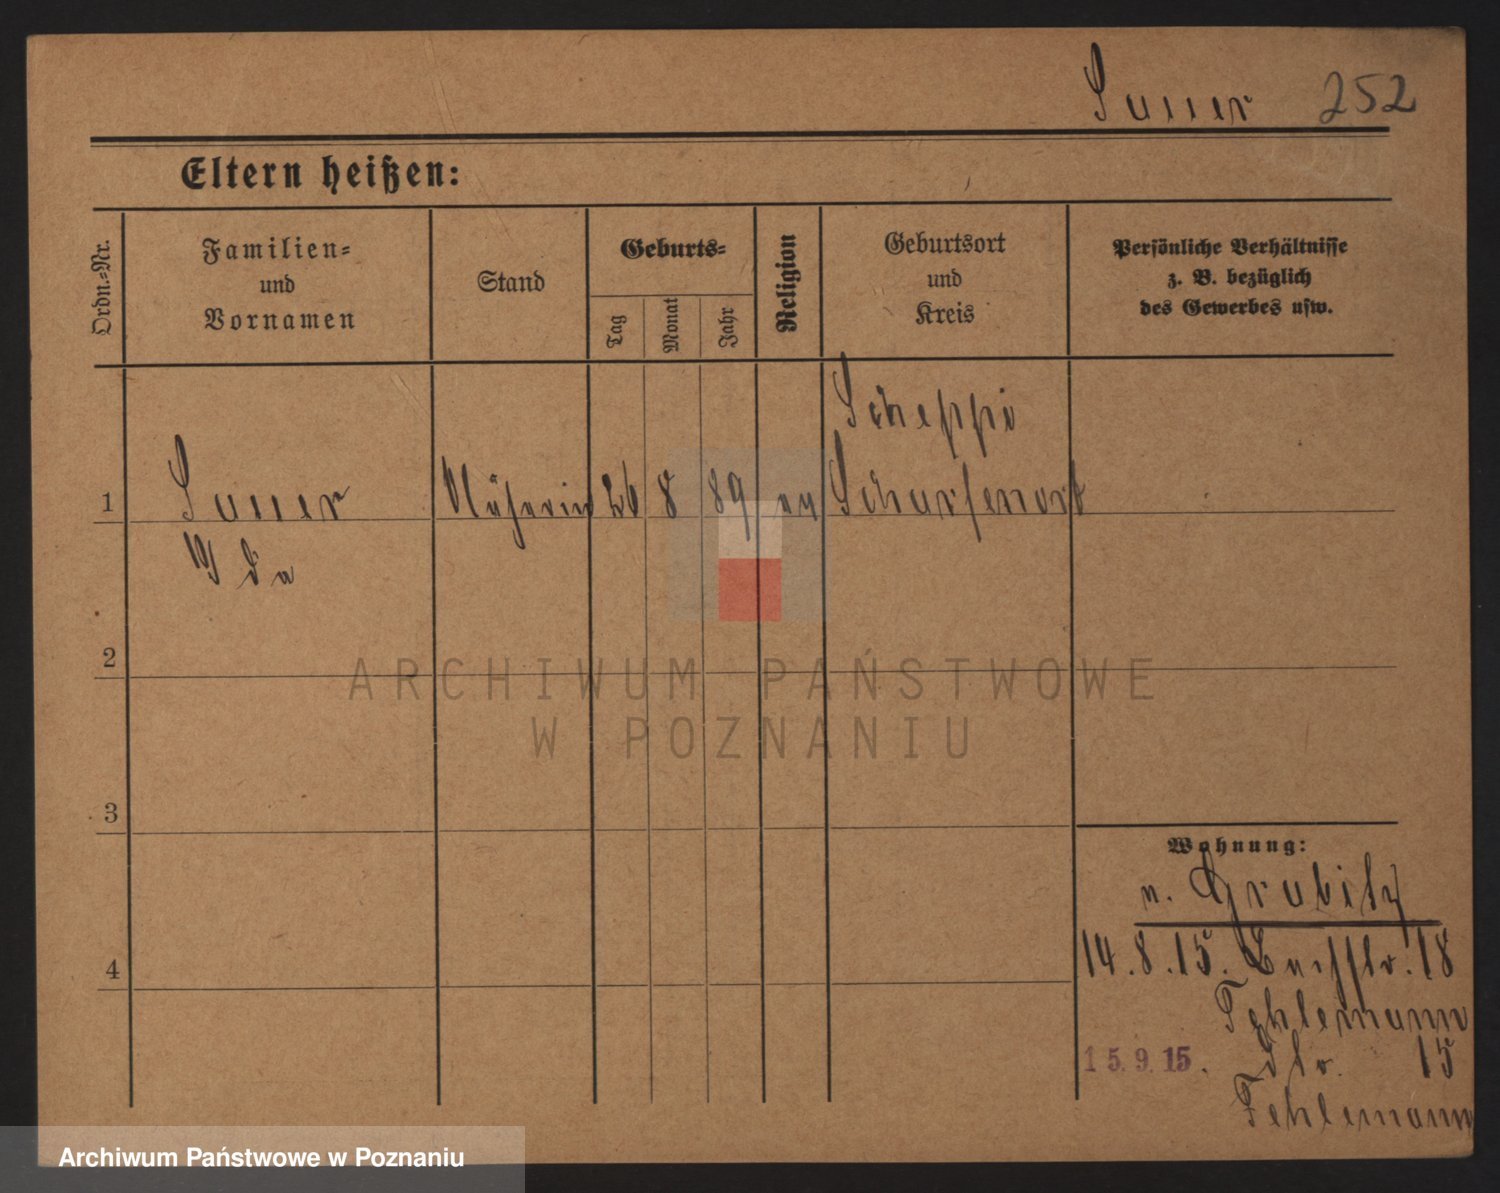 Sauer 252
Eltern heißen:
Ordn.-Nr.
Familien-
und
Vornamen
Stand
Geburts-
Tag
Monat
Jahr
Religion
Geburtsort
und
Kreis
Persönliche Verhältnisse
z. B. bezüglich
des Gewerbes usw.
1 Sauer Näherin 26 8 89 ev Scharfenort
Ida
2
3
4
Wohnung:
n.
14.8.15. 18
Fehlemann
15.9.15. 15
Fehlemann
ARCHIWUM PAŃSTWOWE
W POZNANIU
Archiwum Państwowe w Poznaniu